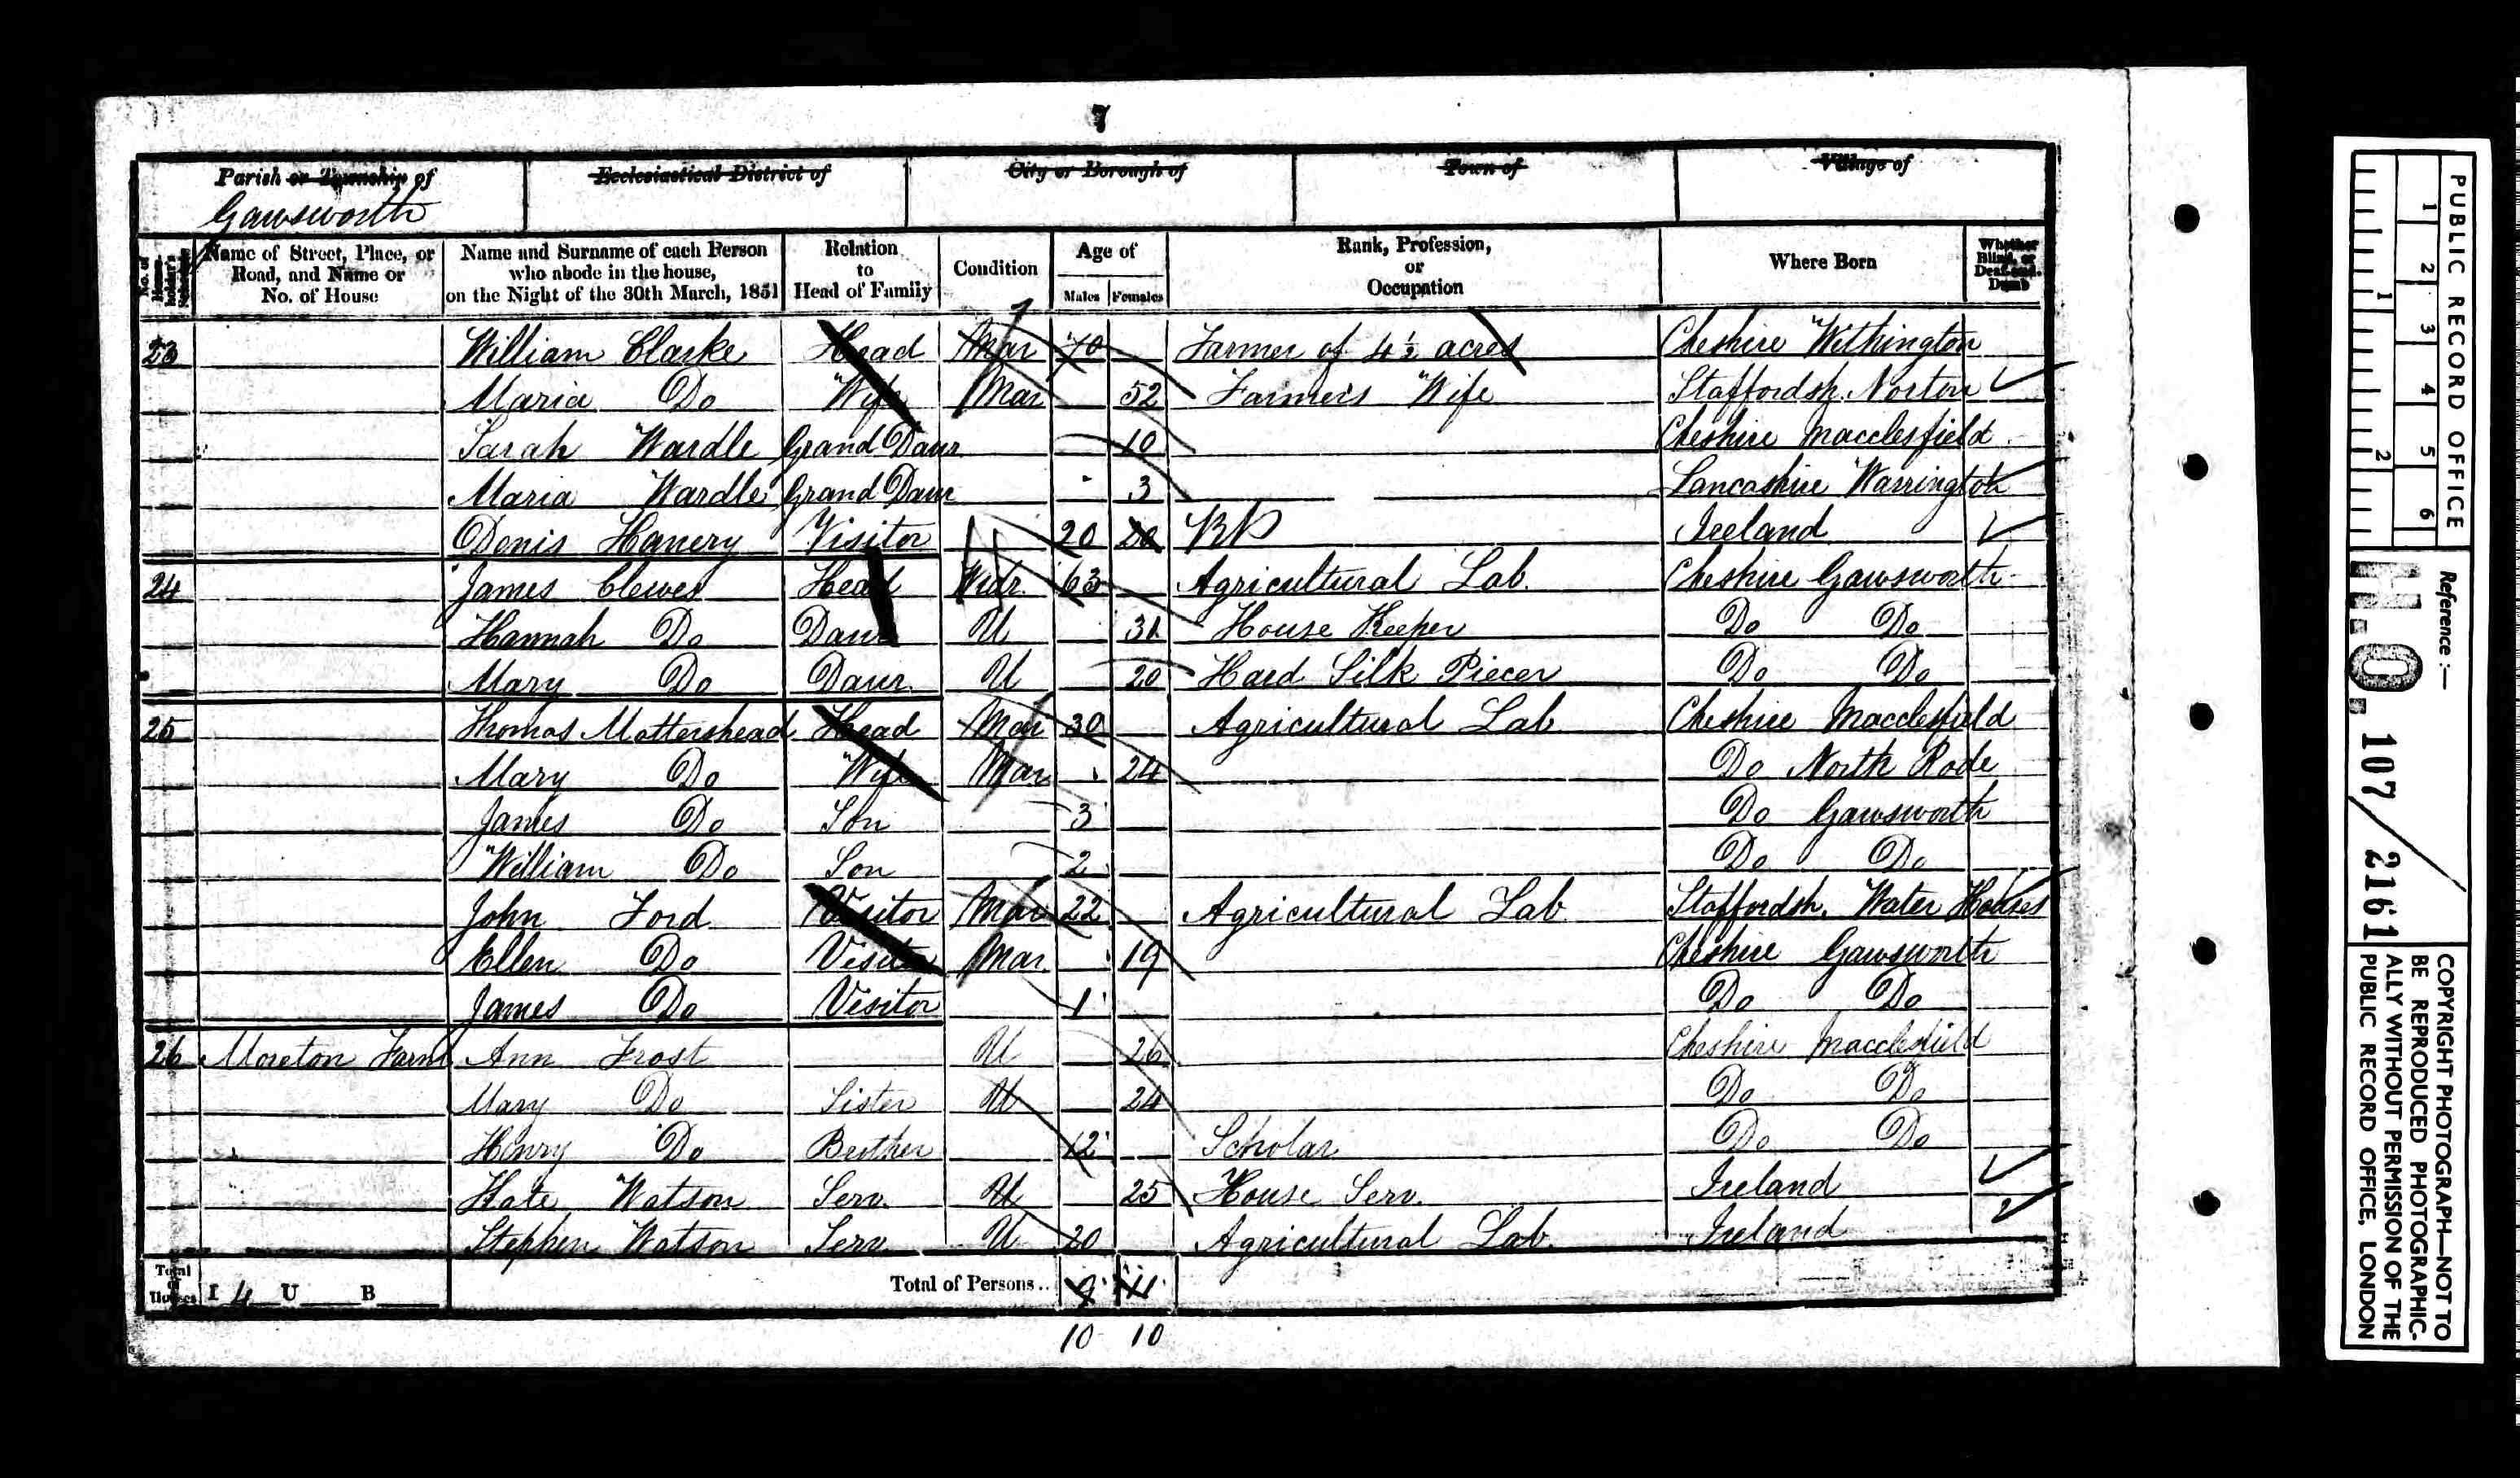 7
Parish or Township of
Gawsworth
Ecclesiastical District of
City or Borough of
Town of
Village of
No. of House-holder's Schedule
Name of Street, Place, or Road, and Name or No. of House
Name and Surname of each Person who abode in the house, on the Night of the 30th March, 1851
Relation to Head of Family
Condition
Age of
Males Females
Rank, Profession, or Occupation
Where Born
Whether Blind, or Deaf-and-Dumb
23 William Clarke Head Mar 70 Farmer of 4½ acres Cheshire Withington
Maria Do Wife Mar 52 Farmer's Wife Staffordsh. Norton
Sarah Wardle Grand Daur 10 Cheshire Macclesfield
Maria Wardle Grand Daur 3 Lancashire Warrington
Denis Hanery Visitor 20 20 Ireland
24 James Clewes Head Widr. 63 Agricultural Lab. Cheshire Gawsworth
Hannah Do Daur U 31 House Keeper Do Do
Mary Do Daur. U 20 Hard Silk Piecer Do Do
25 Thomas Mottershead Head Mar 30 Agricultural Lab Cheshire Macclesfield
Mary Do Wife Mar 24 Do North Rode
James Do Son 3 Do Gawsworth
William Do Son 2 Do Do
John Ford Visitor Mar 22 Agricultural Lab Staffordsh. Water Houses
Ellen Do Visitor Mar. 19 Cheshire Gawsworth
James Do Visitor 1 Do Do
26 Moreton Farm Ann Frost U 26 Cheshire Macclesfield
Mary Do Sister U 24 Do Do
Henry Do Brother 12 Scholar Do Do
Kate Watson Serv. U 25 House Serv. Ireland
Stephen Watson Serv. U 20 Agricultural Lab. Ireland
Total Houses I 4 U B Total of Persons.. 9 11
10 10
PUBLIC RECORD OFFICE
1 2 3 4 5 6
1 2
Reference:—
H.O. 107/2161
COPYRIGHT PHOTOGRAPH—NOT TO
BE REPRODUCED PHOTOGRAPHIC-
ALLY WITHOUT PERMISSION OF THE
PUBLIC RECORD OFFICE, LONDON